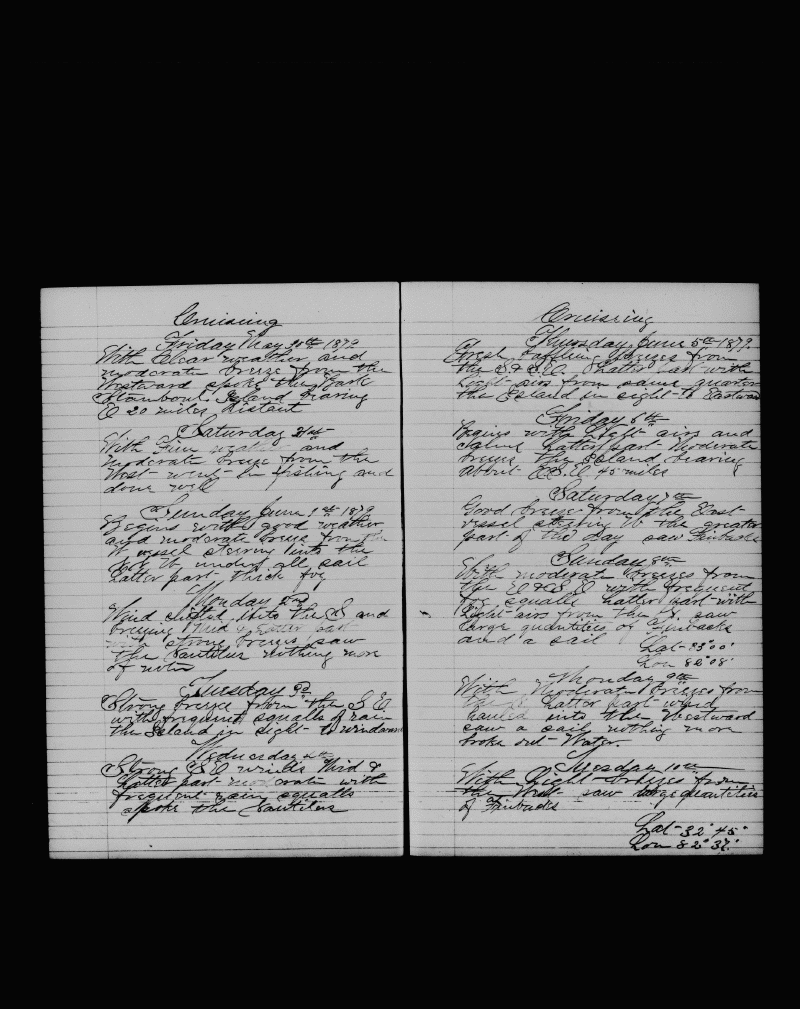 Cruising
Friday May 30th 1879
With Clear weather and
moderate breeze from the
Westward spoke the Bark
Island bearing
E 20 miles distant
Saturday 31st
With Fine weather and
moderate breeze from the
West went in fishing and
done well
Sunday June 1st 1879
Begins with good weather
and moderate breeze from the
W vessel steering into the
W under all sail
Latter part thick fog
Monday 2d
Wind shifted into the S and
breezing Mid & Latter part
strong breezes saw
the Nautilus nothing more
of note
Tuesday 3d
Strong breeze from the S E
with frequent squalls of rain
the Island in sight to windward
Wednesday 4th
Strong S E winds Mid &
Latter part moderate with
frequent rain squalls
spoke the Nautilus
Cruising
Thursday June 5th 1879
Fresh baffling breezes from
the S & S.E. Latter part with
Light airs from same quarter
the Island in sight to Eastward
Friday 6th
Begins with light airs and
calms Latter part Moderate
breeze the Island bearing
about E.S.E 45 miles
Saturday 7th
Good breeze from the East
vessel steering W the greater
part of the day saw Finbacks
Sunday 8th
With moderate breezes from
the E & S.E with frequent
fog squalls Latter part with
Light airs from the S. saw
large quantities of Finbacks
and a sail
Lat- 33° 00'
Lon 82° 08'
Monday 9th
With Moderate breezes from
the S Latter part wind
hauled into the Westward
saw a sail nothing more
broke out Water.
Tuesday 10th
With Light breezes from
the West saw large quantities
of Finbacks
Lat- 32° 45'
Lon 82° 37'